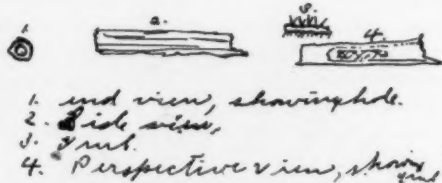 1. 2. 3. 4.
1. end view, showing hole.
2. Side view,
3. Grub.
4. Perspective view, showing
grub